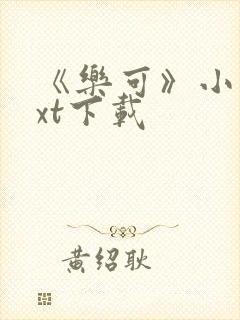 《樂可》小
xt下載
黄绍耿